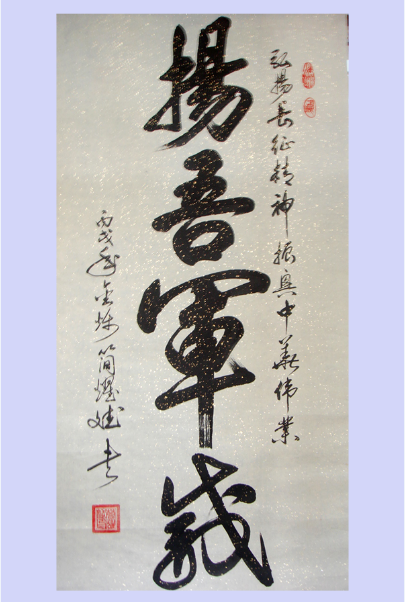 弘揚長征精神振興中華偉業
揚吾軍威
丙戌年金秋簡耀斌书